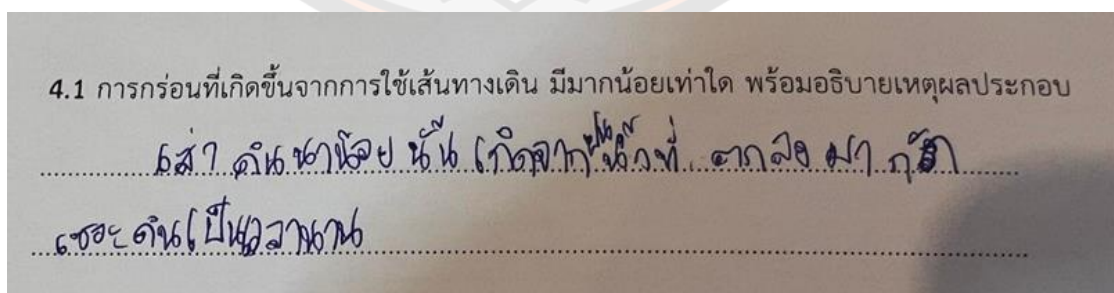 4.1 การกร่อนที่เกิดขึ้นจากการใช้เส้นทางเดิน มีมากน้อยเท่าใด พร้อมอธิบายเหตุผลประกอบ
เสาดินนาน้อย นั้น เกิดจาก ที่ ตกลง มา กัด
เซอะดินเป็นเวลานาน